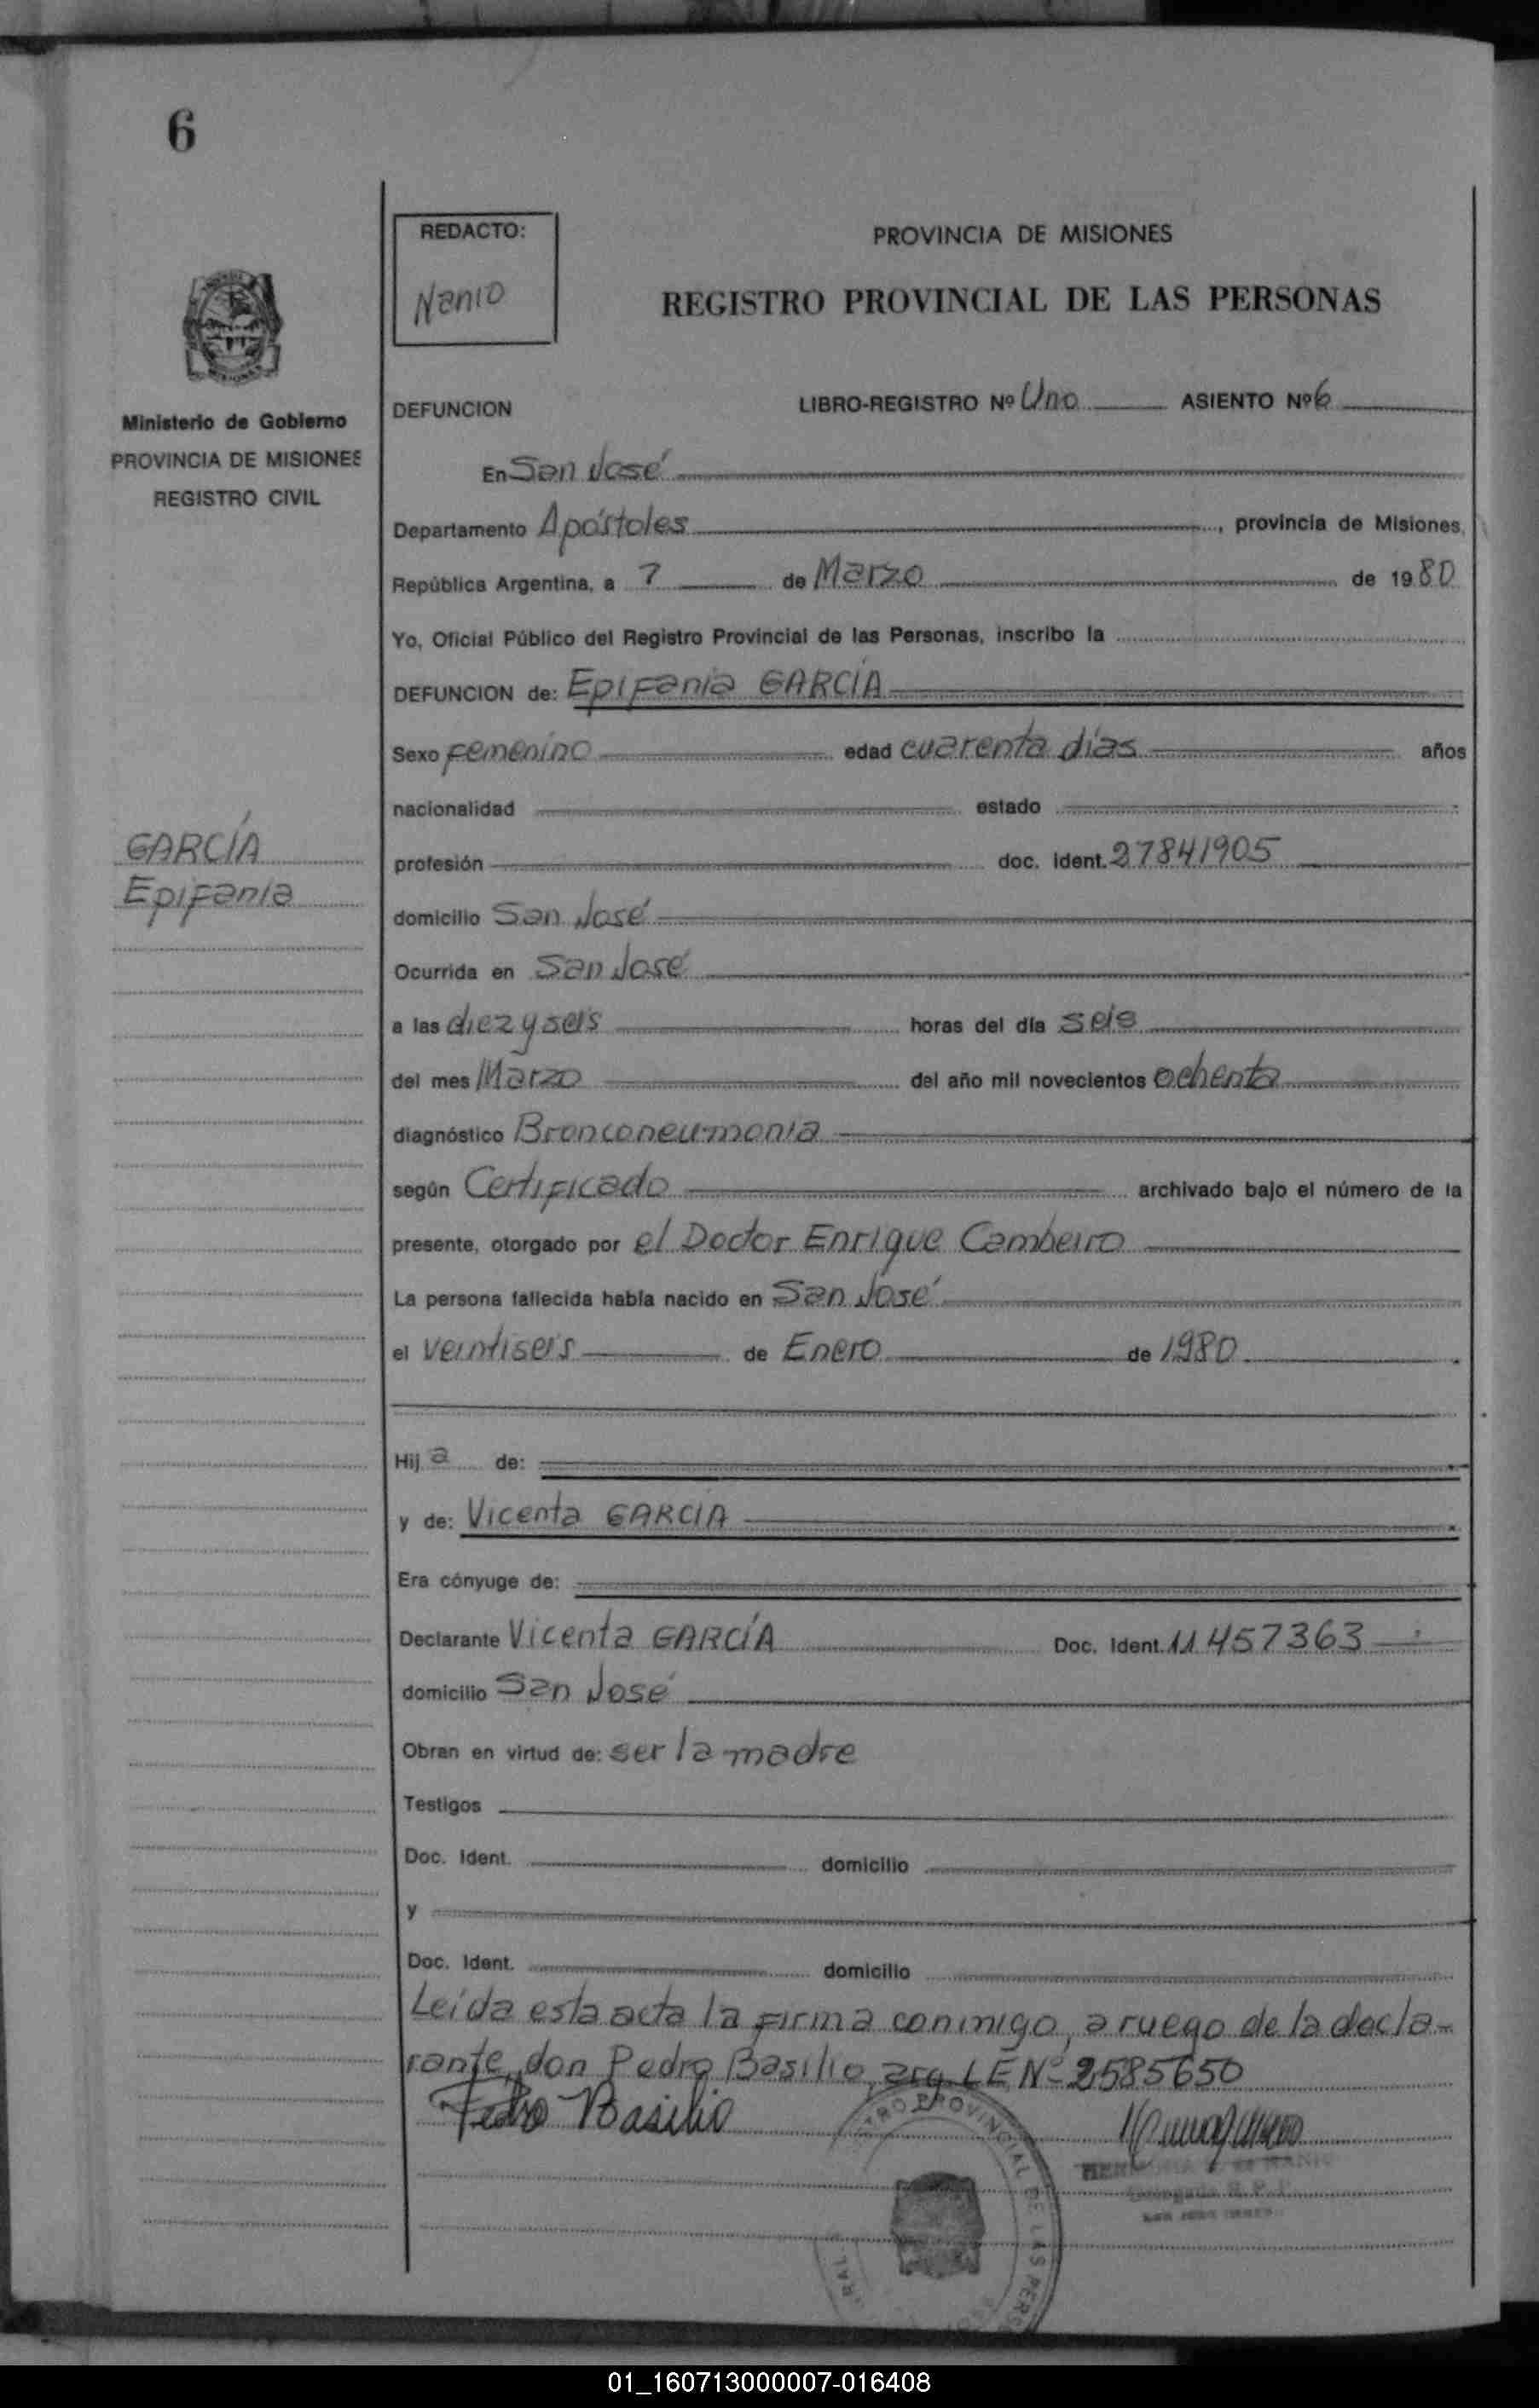 6
REDACTO:
Nanio
PROVINCIA DE MISIONES
REGISTRO PROVINCIAL DE LAS PERSONAS
Ministerio de Gobierno
PROVINCIA DE MISIONES
REGISTRO CIVIL
DEFUNCION LIBRO-REGISTRO Nº Uno ASIENTO Nº 6
En San José
Departamento Apóstoles, provincia de Misiones,
República Argentina, a 7 de Marzo de 1980
Yo, Oficial Público del Registro Provincial de las Personas, inscribo la
DEFUNCION de: Epifania GARCÍA
Sexo femenino edad cuarenta días años
nacionalidad estado
GARCÍA
Epifania
profesión doc. ident. 27841905
domicilio San José
Ocurrida en San José
a las diez y seis horas del día seis
del mes Marzo del año mil novecientos ochenta
diagnóstico Bronconeumonia
según Certificado archivado bajo el número de la
presente, otorgado por el Doctor Enrique Cambeiro
La persona fallecida había nacido en San José
el veintiseis de Enero de 1980
Hij a de:
y de: Vicenta GARCIA
Era cónyuge de:
Declarante Vicenta GARCÍA Doc. Ident. 11457363
domicilio San José
Obran en virtud de: ser la madre
Testigos
Doc. Ident. domicilio
y
Doc. Ident. domicilio
Leída esta acta la firma conmigo, a ruego de la decla-
rante, don Pedro Basilio, arg. LE Nº 2585650
Pedro Basilio
01_160713000007-016408